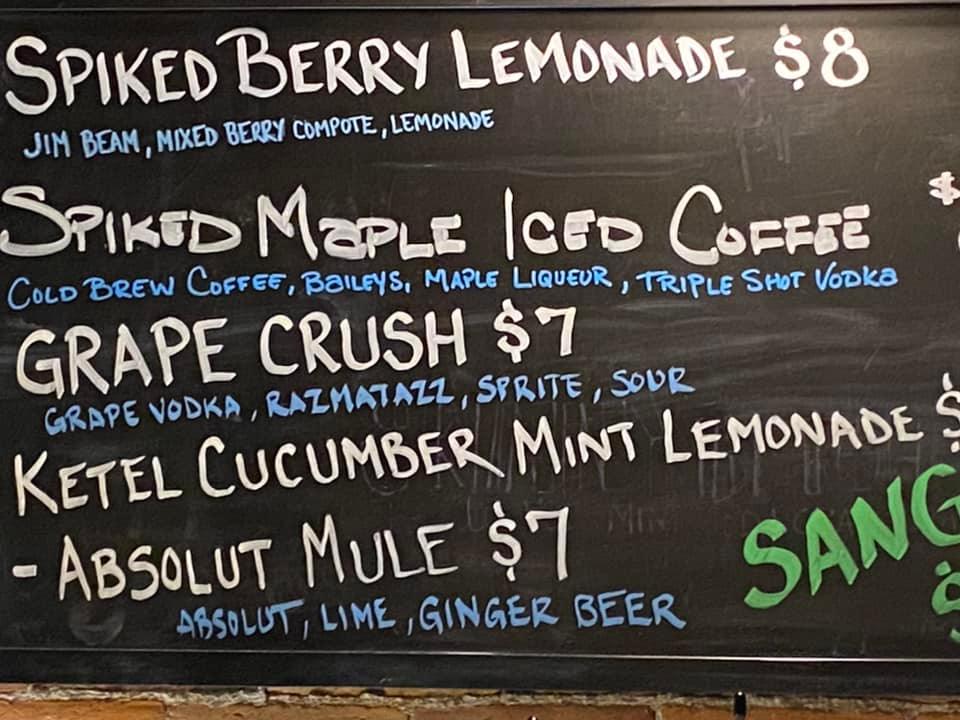 SPIKED BERRY LEMONADE $8
JIM BEAM, MIXED BERRY COMPOTE, LEMONADE
SPIKED MAPLE ICED COFFEE $
COLD BREW COFFEE, BAILEYS, MAPLE LIQUEUR, TRIPLE SHOT VODKA
GRAPE CRUSH $7
GRAPE VODKA, RAZMATAZZ, SPRITE, SOUR
KETEL CUCUMBER MINT LEMONADE $
- ABSOLUT MULE $7
ABSOLUT, LIME, GINGER BEER
SANG
$